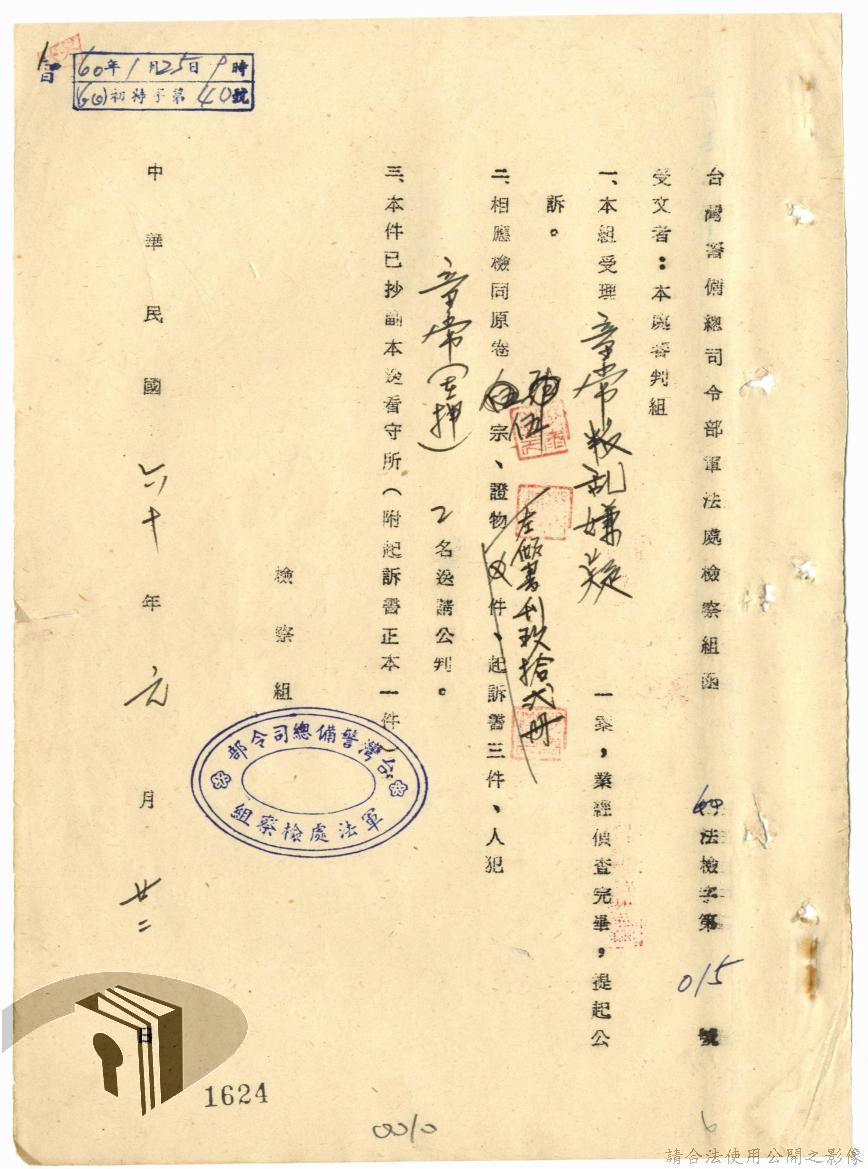 60年1月25日9時
(60)初特字第40號
台灣警備總司令部軍法處檢察組函
法檢字第 015 號
受文者:本處審判組
一、本組受理章常叛乱嫌疑一案,業經偵查完畢,提起公
訴。
二、相應檢同原卷伍宗、證物左傾書刊玖拾弍冊件、起訴書三件、人犯
章常(在押)
名送請公判。
三、本件已抄副本送看守所(附起訴書正本一件)
檢察組
台灣警備總司令部
軍法處檢察組
中華民國六十年元月廿二日
1624
請合法使用公開之影像